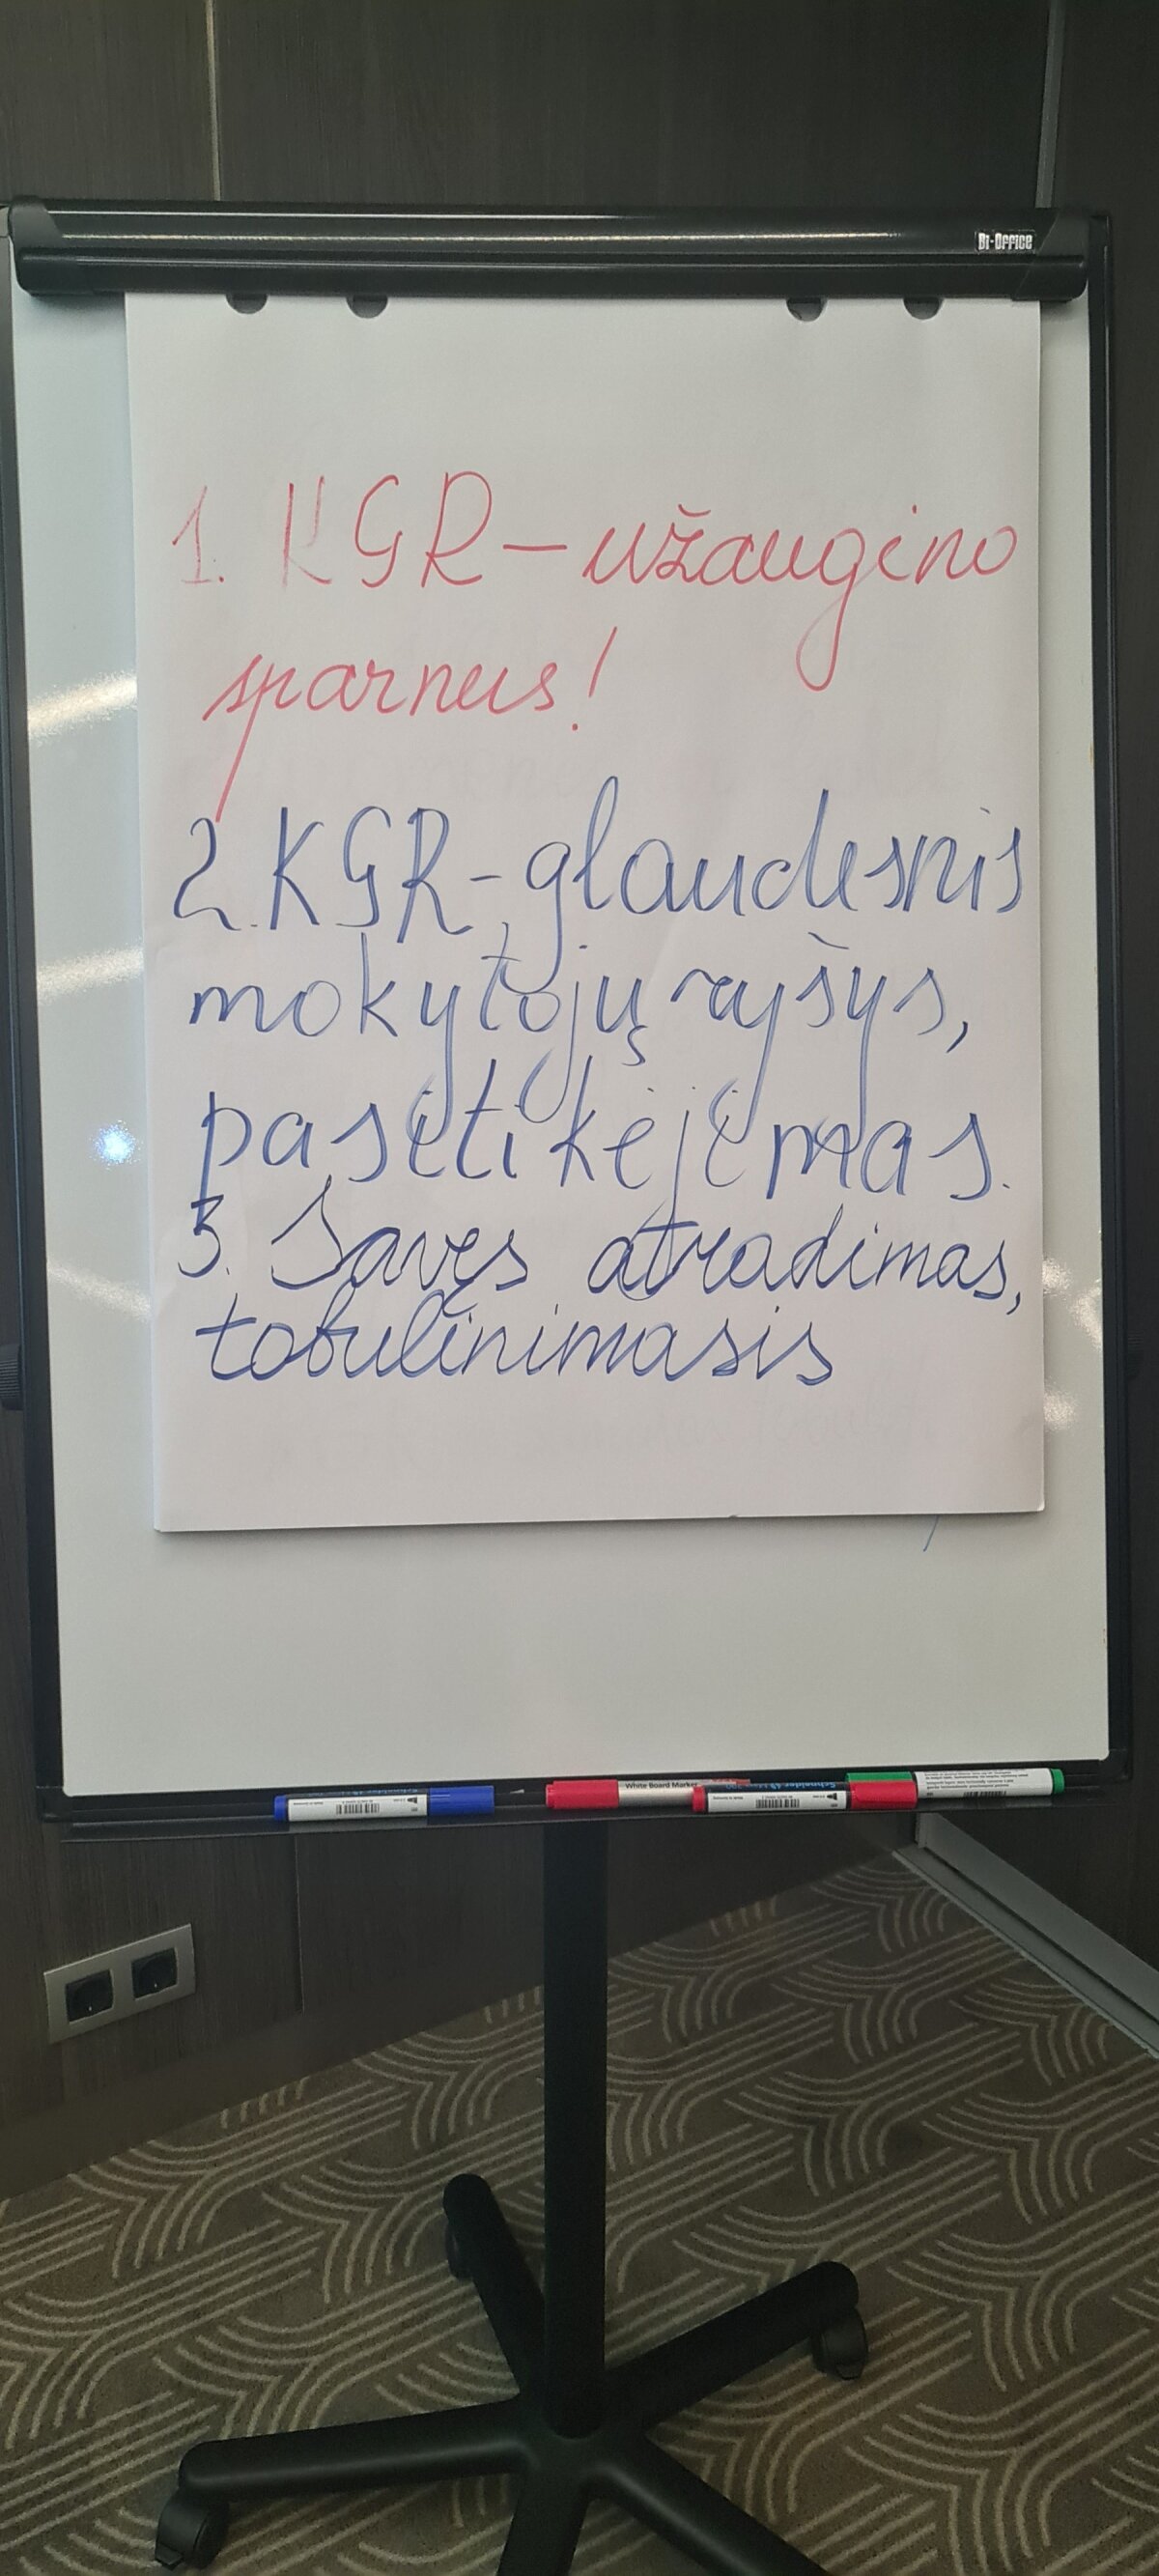 Bi-Office
1. KGR – užaugino
sparnus!
2. KGR - glaudesnis
mokytojų ryšys,
pasitikėjimas.
3. Savęs atradimas,
tobulinimasis
White Board Marker
Schneider